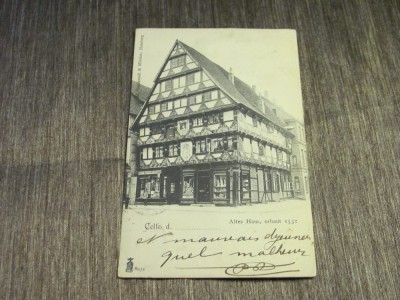 Celle, d.
Altes Haus, erbaut 1532
et mauvais dejeuner
quel malheur